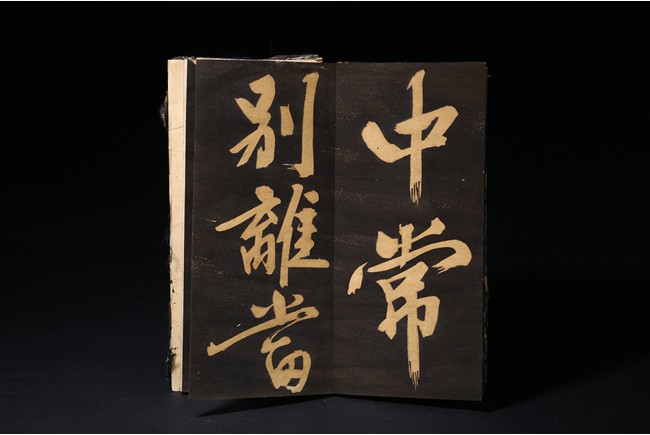 中常
別離當